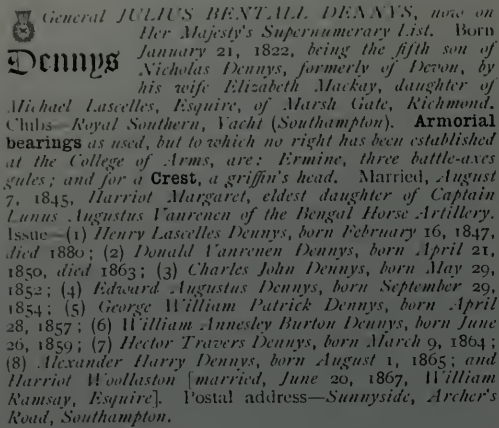 General JULIUS BENTALL DENNYS, now on
Her Majesty's Supernumerary List. Born
Dennys
January 21, 1822, being the fifth son of
Nicholas Dennys, formerly of Devon, by
his wife Elizabeth Mackay, daughter of
Michael Lascelles, Esquire, of Marsh Gate, Richmond.
Clubs—Royal Southern, Yacht (Southampton). Armorial
bearings as used, but to which no right has been established
at the College of Arms, are: Ermine, three battle-axes
gules; and for a Crest, a griffin's head. Married, August
7, 1845, Harriot Margaret, eldest daughter of Captain
Lunus Augustus Vanrenen of the Bengal Horse Artillery.
Issue—(1) Henry Lascelles Dennys, born February 16, 1847,
died 1880; (2) Donald Vanrenen Dennys, born April 21,
1850, died 1863; (3) Charles John Dennys, born May 29,
1852; (4) Edward Augustus Dennys, born September 29,
1854; (5) George William Patrick Dennys, born April
28, 1857; (6) William Annesley Burton Dennys, born June
26, 1859; (7) Hector Travers Dennys, born March 9, 1864;
(8) Alexander Harry Dennys, born August 1, 1865; and
Harriot Woollaston [married, June 20, 1867, William
Ramsay, Esquire]. Postal address—Sunnyside, Archer's
Road, Southampton.